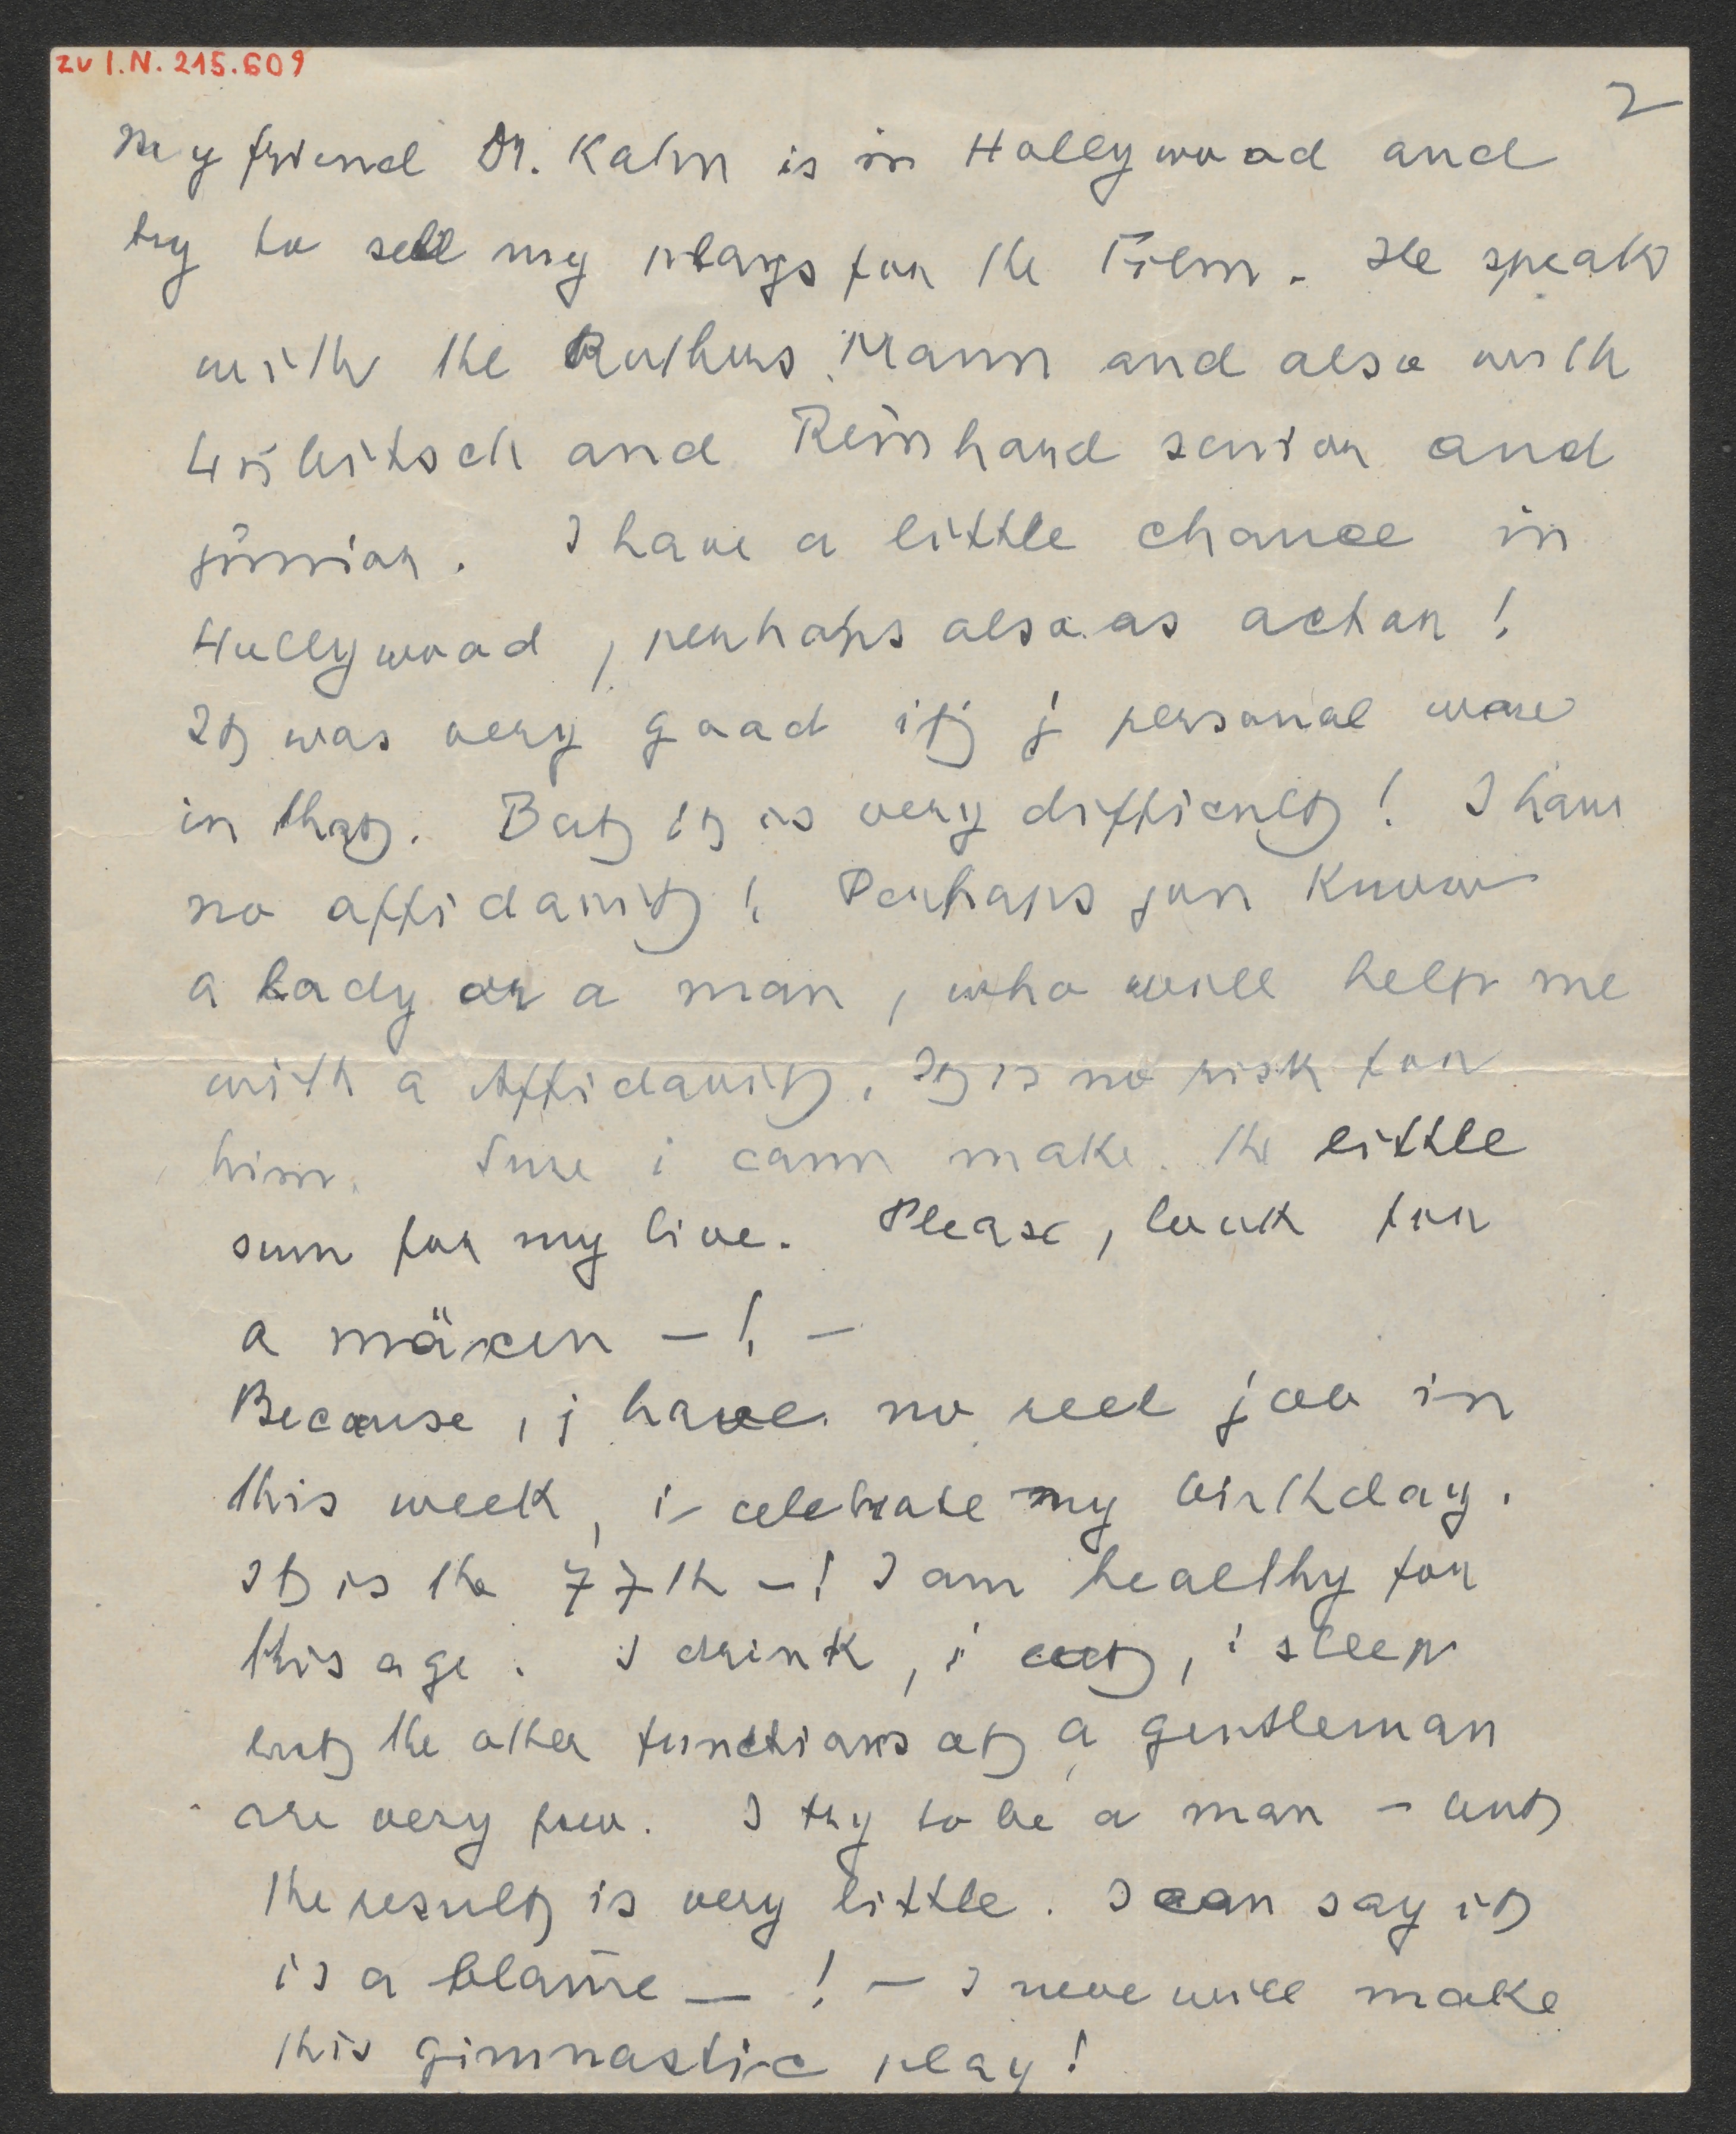 zu I.N. 215.609
2
My friend Dr. Kahn is in Hollywood and
try to sell my plays for the Film. He speaks
with the Authors Mann and also with
Lübitsch and Reinhard senior and
jünior. I have a little chance in
Hollywood, perhaps also as actor!
It was very good if j personal ware
in that. But it is very difficult! I have
no affidavit! Perhaps you know
a Lady or a man, who will help me
with a Affidavit. It is no risk for
him. Sure i cann make the little
sum for my live. Please, look for
a mäcen – ! –
Because, j have no reel job in
this week, i celebrate my birthday.
It is the 77th – ! I am healthy for
this age. I drink, i eat, i sleep
but the other functions of a gentleman
are very few. I try to be a man – but
the result is very little. I can say it
is a blame – ! – I neve will make
this gimnastic play!